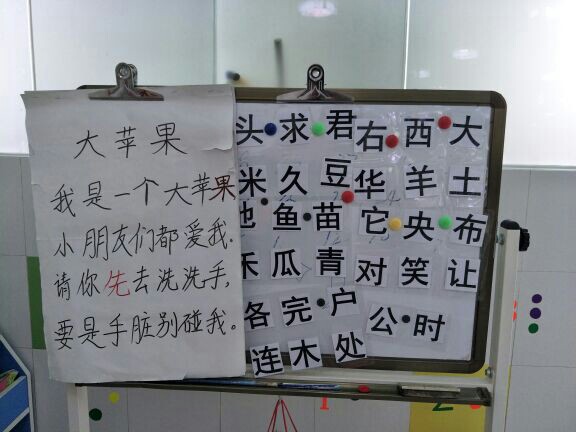 大苹果
我是一个大苹果
小朋友们都爱我.
请你先去洗洗手,
要是手脏别碰我。
头求君右西大
米久豆华羊土
鱼苗它央布
瓜青对笑让
各完户公时
连木处